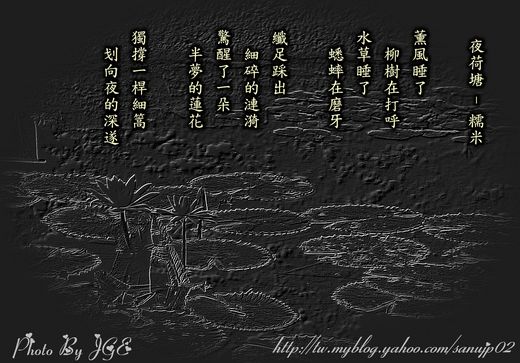 夜荷塘 - 糯米
薰風睡了
柳樹在打呼
水草睡了
蟋蟀在磨牙
纖足踩出
細碎的漣漪
驚醒了一朵
半夢的蓮花
獨撐一桿細篙
划向夜的深邃
Photo By JGE
http://tw.myblog.yahoo.com/sanujp02